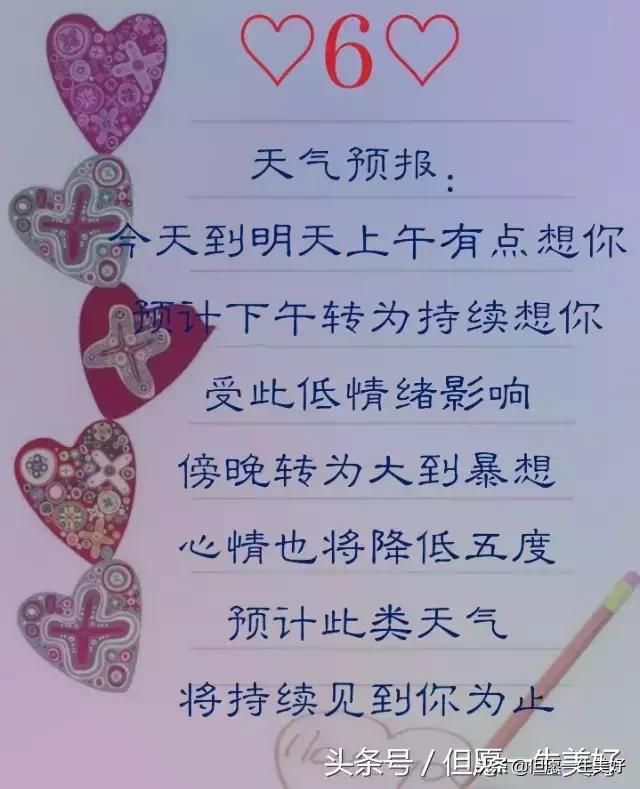 ♡6♡
天气预报：
今天到明天上午有点想你
预计下午转为持续想你
受此低情绪影响
傍晚转为大到暴想
心情也将降低五度
预计此类天气
将持续见到你为止
头条号 / 但愿一生美好
头条@但愿一生美好